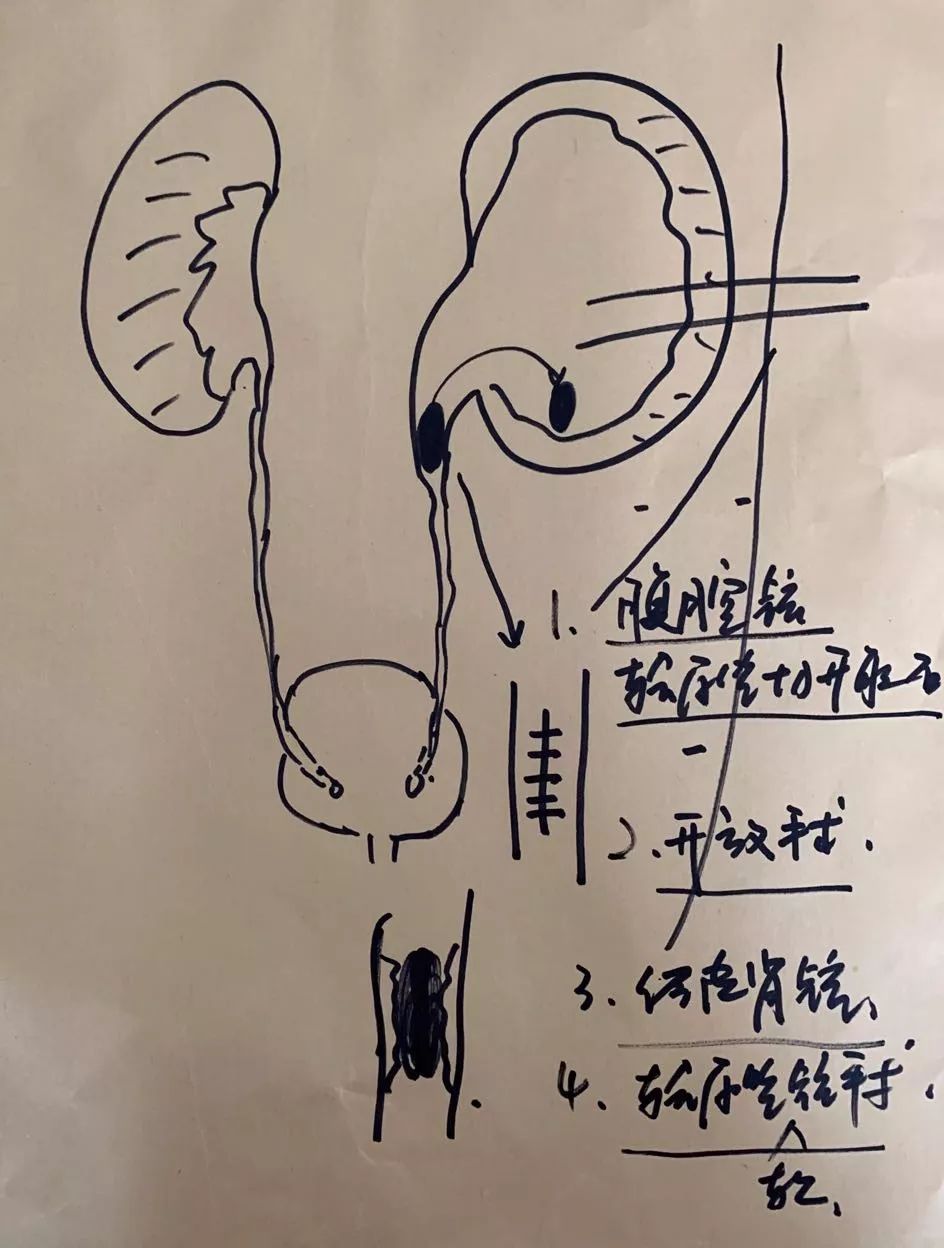 1. 腹腔镜
输尿管切开取石
2. 开放手术.
3. 经皮肾镜、
4. 输尿管镜手术.
软、